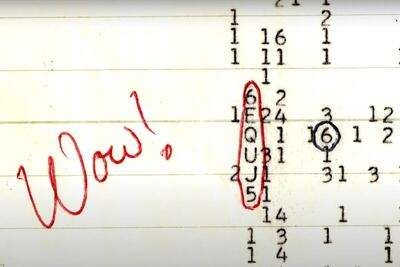 1 2
1 16 1
1 11 1
1
6 2
1 E 24 3 12
Q 1 16 1 2
U 31 1
2 J 1 31 3
5 1
14 1
1 3 1 1
1 4 1
Wow!